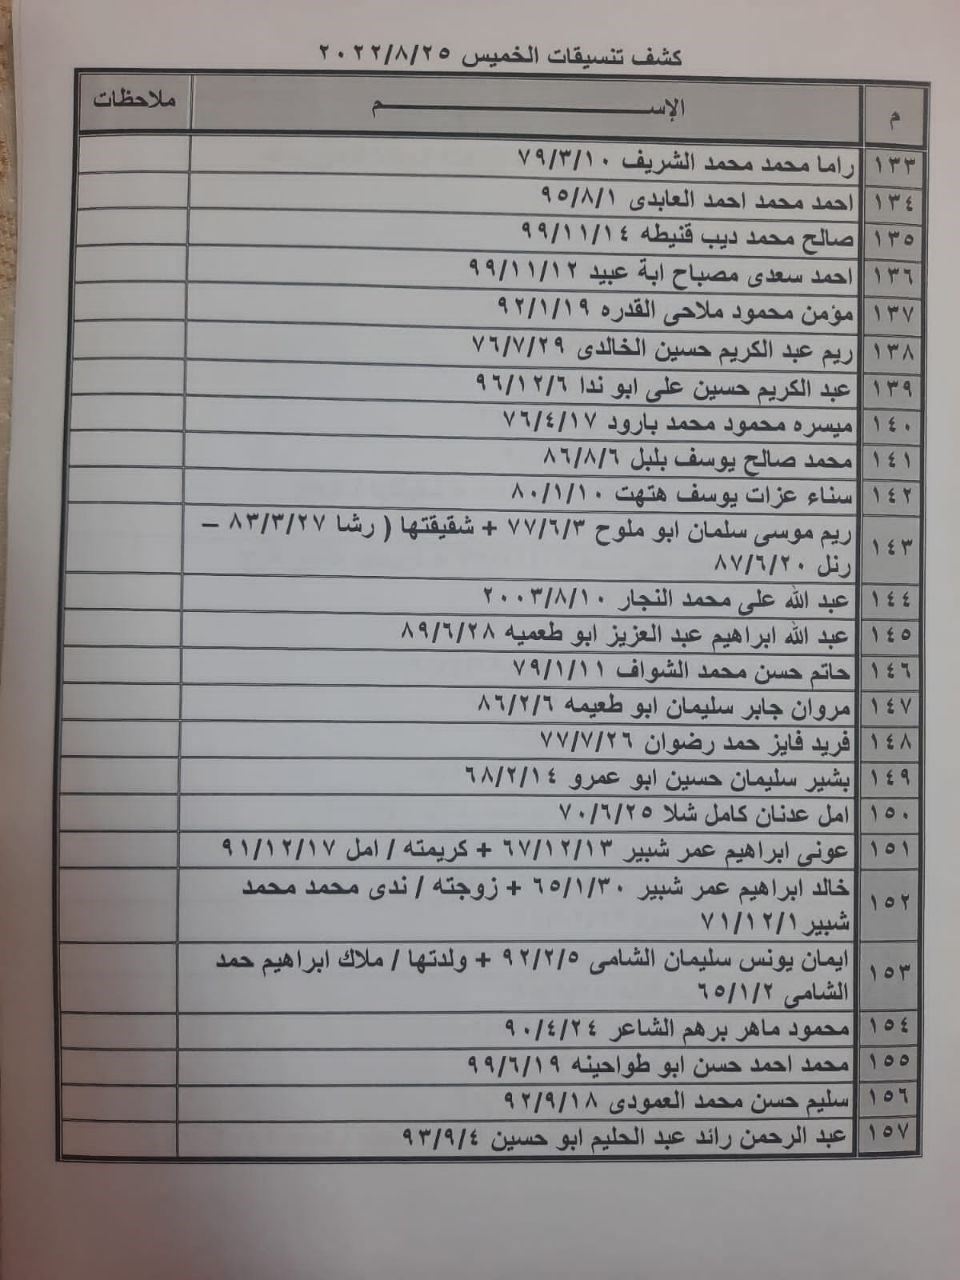 كشف تنسيقات الخميس ٢٠٢٢/٨/٢٥
م الإســـــــــــم ملاحظات
١٣٣ راما محمد محمد الشريف ٧٩/٣/١٠
١٣٤ احمد محمد احمد العابدى ٩٥/٨/١
١٣٥ صالح محمد ديب قنيطه ٩٩/١١/١٤
١٣٦ احمد سعدى مصباح ابة عبيد ٩٩/١١/١٢
١٣٧ مؤمن محمود ملاحى القدره ٩٢/١/١٩
١٣٨ ريم عبد الكريم حسين الخالدى ٧٦/٧/٢٩
١٣٩ عبد الكريم حسين على ابو ندا ٩٦/١٢/٦
١٤٠ ميسره محمود محمد بارود ٧٦/٤/١٧
١٤١ محمد صالح يوسف بلبل ٨٦/٨/٦
١٤٢ سناء عزات يوسف هتهت ٨٠/١/١٠
١٤٣ ريم موسى سلمان ابو ملوح ٧٧/٦/٣ + شقيقتها ( رشا ٨٣/٣/٢٧ –
رنل ٨٧/٦/٢٠
١٤٤ عبد الله على محمد النجار ٢٠٠٣/٨/١٠
١٤٥ عبد الله ابراهيم عبد العزيز ابو طعميه ٨٩/٦/٢٨
١٤٦ حاتم حسن محمد الشواف ٧٩/١/١١
١٤٧ مروان جابر سليمان ابو طعيمه ٨٦/٢/٦
١٤٨ فريد فايز حمد رضوان ٧٧/٧/٢٦
١٤٩ بشير سليمان حسين ابو عمرو ٦٨/٢/١٤
١٥٠ امل عدنان كامل شلا ٧٠/٦/٢٥
١٥١ عونى ابراهيم عمر شبير ٦٧/١٢/١٣ + كريمته / امل ٩١/١٢/١٧
١٥٢ خالد ابراهيم عمر شبير ٦٥/١/٣٠ + زوجته / ندى محمد محمد
شبير ٧١/١٢/١
١٥٣ ايمان يونس سليمان الشامى ٩٢/٢/٥ + ولدتها / ملاك ابراهيم حمد
الشامى ٦٥/١/٢
١٥٤ محمود ماهر برهم الشاعر ٩٠/٤/٢٤
١٥٥ محمد احمد حسن ابو طواحينه ٩٩/٦/١٩
١٥٦ سليم حسن محمد العمودى ٩٢/٩/١٨
١٥٧ عبد الرحمن رائد عبد الحليم ابو حسين ٩٣/٩/٤